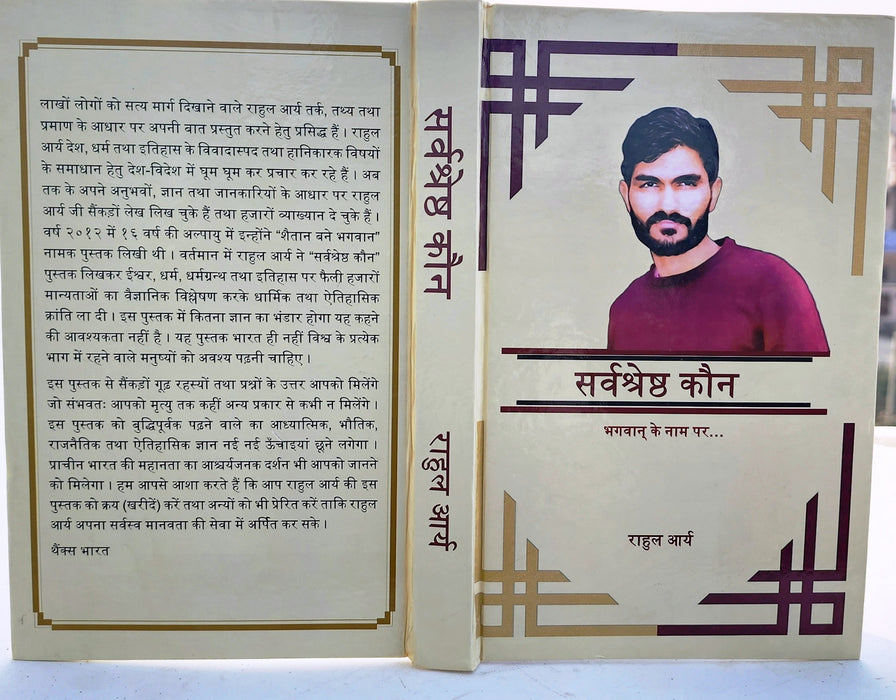 लाखों लोगों को सत्य मार्ग दिखाने वाले राहुल आर्य तर्क, तथ्य तथा
प्रमाण के आधार पर अपनी बात प्रस्तुत करने हेतु प्रसिद्ध हैं । राहुल
आर्य देश, धर्म तथा इतिहास के विवादास्पद तथा हानिकारक विषयों
के समाधान हेतु देश-विदेश में घूम घूम कर प्रचार कर रहे हैं । अब
तक के अपने अनुभवों, ज्ञान तथा जानकारियों के आधार पर राहुल
आर्य जी सैंकड़ों लेख लिख चुके हैं तथा हजारों व्याख्यान दे चुके हैं ।
वर्ष २०१२ में १६ वर्ष की अल्पायु में इन्होंने “शैतान बने भगवान”
नामक पुस्तक लिखी थी । वर्तमान में राहुल आर्य ने “सर्वश्रेष्ठ कौन”
पुस्तक लिखकर ईश्वर, धर्म, धर्मग्रन्थ तथा इतिहास पर फैली हजारों
मान्यताओं का वैज्ञानिक विश्लेषण करके धार्मिक तथा ऐतिहासिक
क्रांति ला दी । इस पुस्तक में कितना ज्ञान का भंडार होगा यह कहने
की आवश्यकता नहीं है । यह पुस्तक भारत ही नहीं विश्व के प्रत्येक
भाग में रहने वाले मनुष्यों को अवश्य पढ़नी चाहिए ।
इस पुस्तक से सैंकड़ों गूढ़ रहस्यों तथा प्रश्नों के उत्तर आपको मिलेंगे
जो संभवतः आपको मृत्यु तक कहीं अन्य प्रकार से कभी न मिलेंगे ।
इस पुस्तक को बुद्धिपूर्वक पढ़ने वाले का आध्यात्मिक, भौतिक,
राजनैतिक तथा ऐतिहासिक ज्ञान नई नई ऊँचाइयां छूने लगेगा ।
प्राचीन भारत की महानता का आश्चर्यजनक दर्शन भी आपको जानने
को मिलेगा । हम आपसे आशा करते हैं कि आप राहुल आर्य की इस
पुस्तक को क्रय (खरीदें) करें तथा अन्यों को भी प्रेरित करें ताकि राहुल
आर्य अपना सर्वस्व मानवता की सेवा में अर्पित कर सके ।
थैंक्स भारत
सर्वश्रेष्ठ कौन
राहुल आर्य
सर्वश्रेष्ठ कौन
भगवान् के नाम पर...
राहुल आर्य